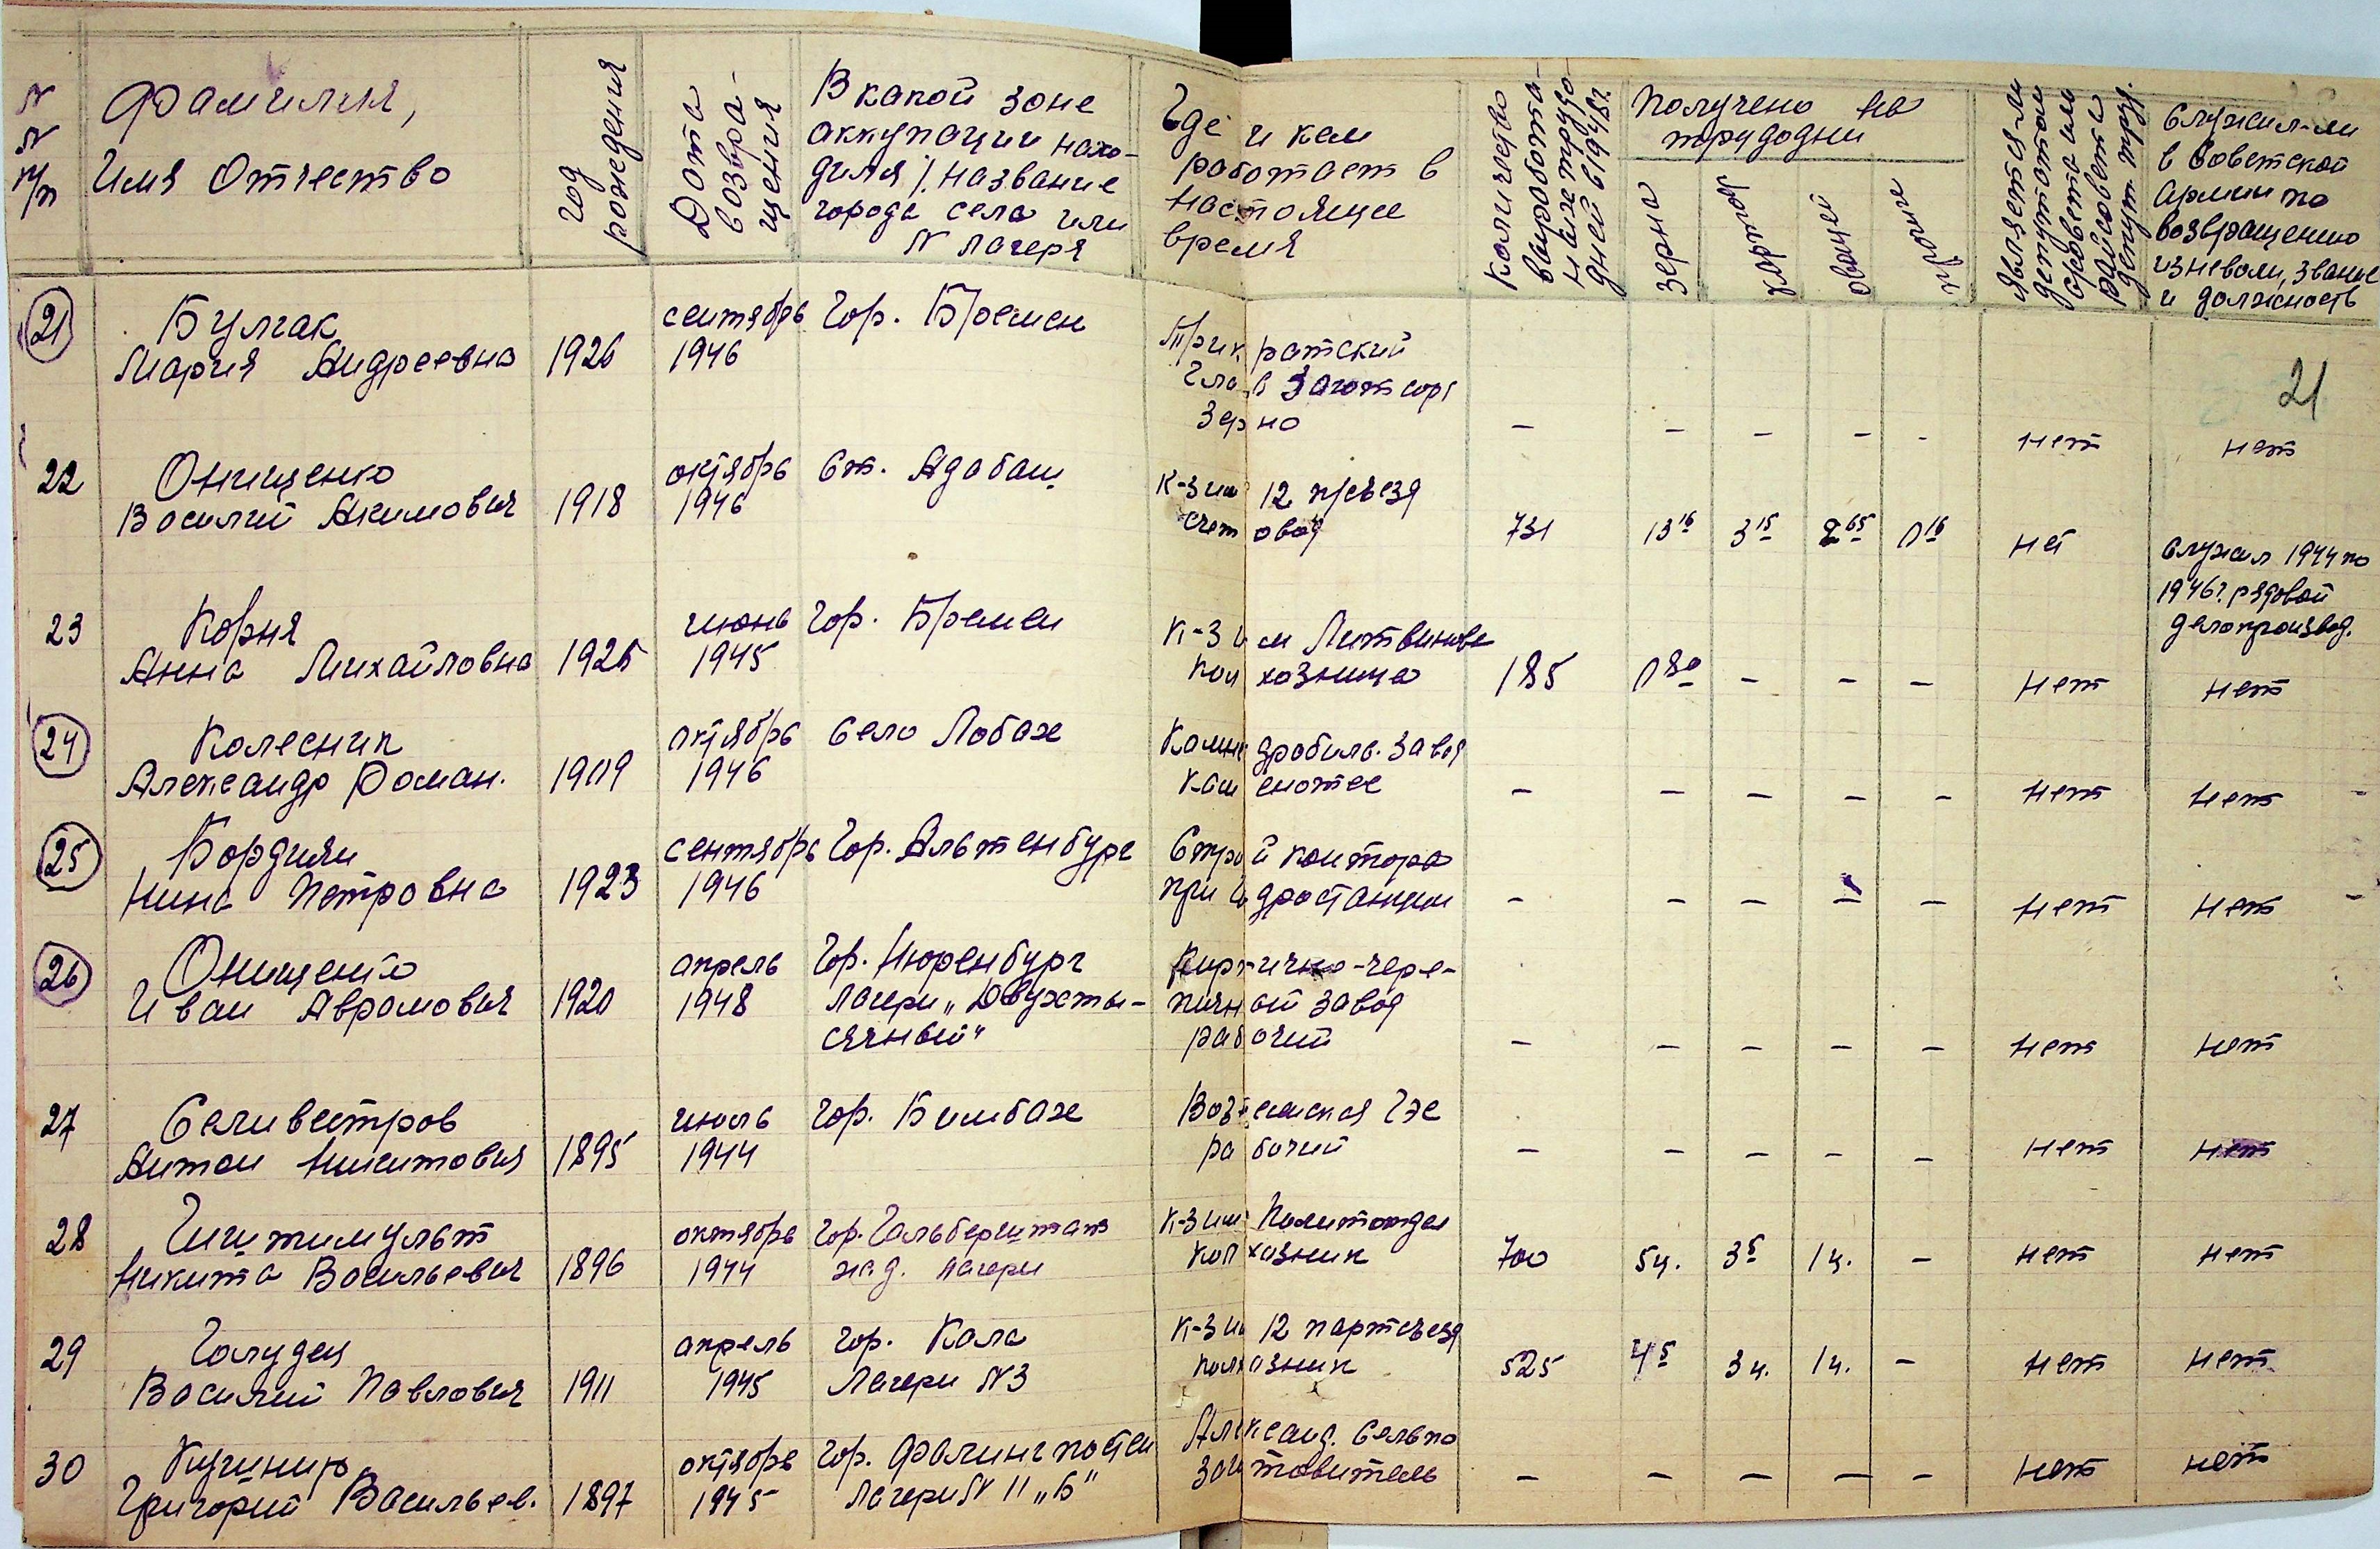 N N п/п
Фамилия,
Имя Отчество
год рождения
Дата возвра-
щения
В какой зоне
аккупации нахо-
дился /. название
города села или
N лагеря
Где и кем
работает в
настоящее
время
Количество
выработа-
ных трудо-
дней в 1948г.
Получено на
трудодни
зерна
картоф
овощей
прочие
Является-ли
депутатом
с/совета или
райсовета
депут. труд.
Служил-ли
в Советской
армии по
возвращению
из неволи, звание
и должность
21
21 Булгак сентябрь Гор. Бремен
Мария Андреевна 1926 1946 Трикратский
Глав Загот сорт
Зерно – – – – - нет нет
22 Онищенко октябрь Ст. Адабаш
Василий Акимович 1918 1946 К-з им 12 п/съезд
счетовод 731 13 16 3 15 2 65 0 16 нет
Служил 1944 по
1946г. рядовой
делопроизвод.
23 Корня июнь Гор. Бремен
Анна Михайловна 1925 1945 К-з им Литвинова
колхозница 185 0 80 – – – нет нет
24 Колесник октябрь Село Лобах
Александр Роман. 1909 1946 Камнедробиль. завод
каменотес – – – – – нет нет
25 сентябрь Гор. Альтенбург
Нина Петровна 1923 1946 Строй контора
при гидростанции – – – – – нет нет
26 Онищенко апрель Гор. Нюренбург
Иван Аврамович 1920 1948 лагерь „Двухты-
сячный"
Кирпично-чере-
пичный завод
рабочий – – – – – нет нет
27 Селивестров июль Гор. Бимбах
Антон Никитович 1895 1944 Вознесенская ГЭС
рабочий – – – – – нет нет
28 октябрь Гор. Гальберштат
Никита Васильевич 1896 1944 ж.д. лагерь
К-з им Политотдел
колхозник 700 5ц. 3 5 1ц. – нет нет
29 апрель Гор. Кала
Василий Павлович 1911 1945 Лагерь N 3
К-з им 12 партсъезд
колхозник 525 4 5 3ц. 1ц. – нет нет
30 Кушнир октябрь Гор. Фалингпостен
Григорий Васильев. 1897 1945 лагерь N 11 „Б"
Александ. Сельпо
заготовитель – – – – – нет нет